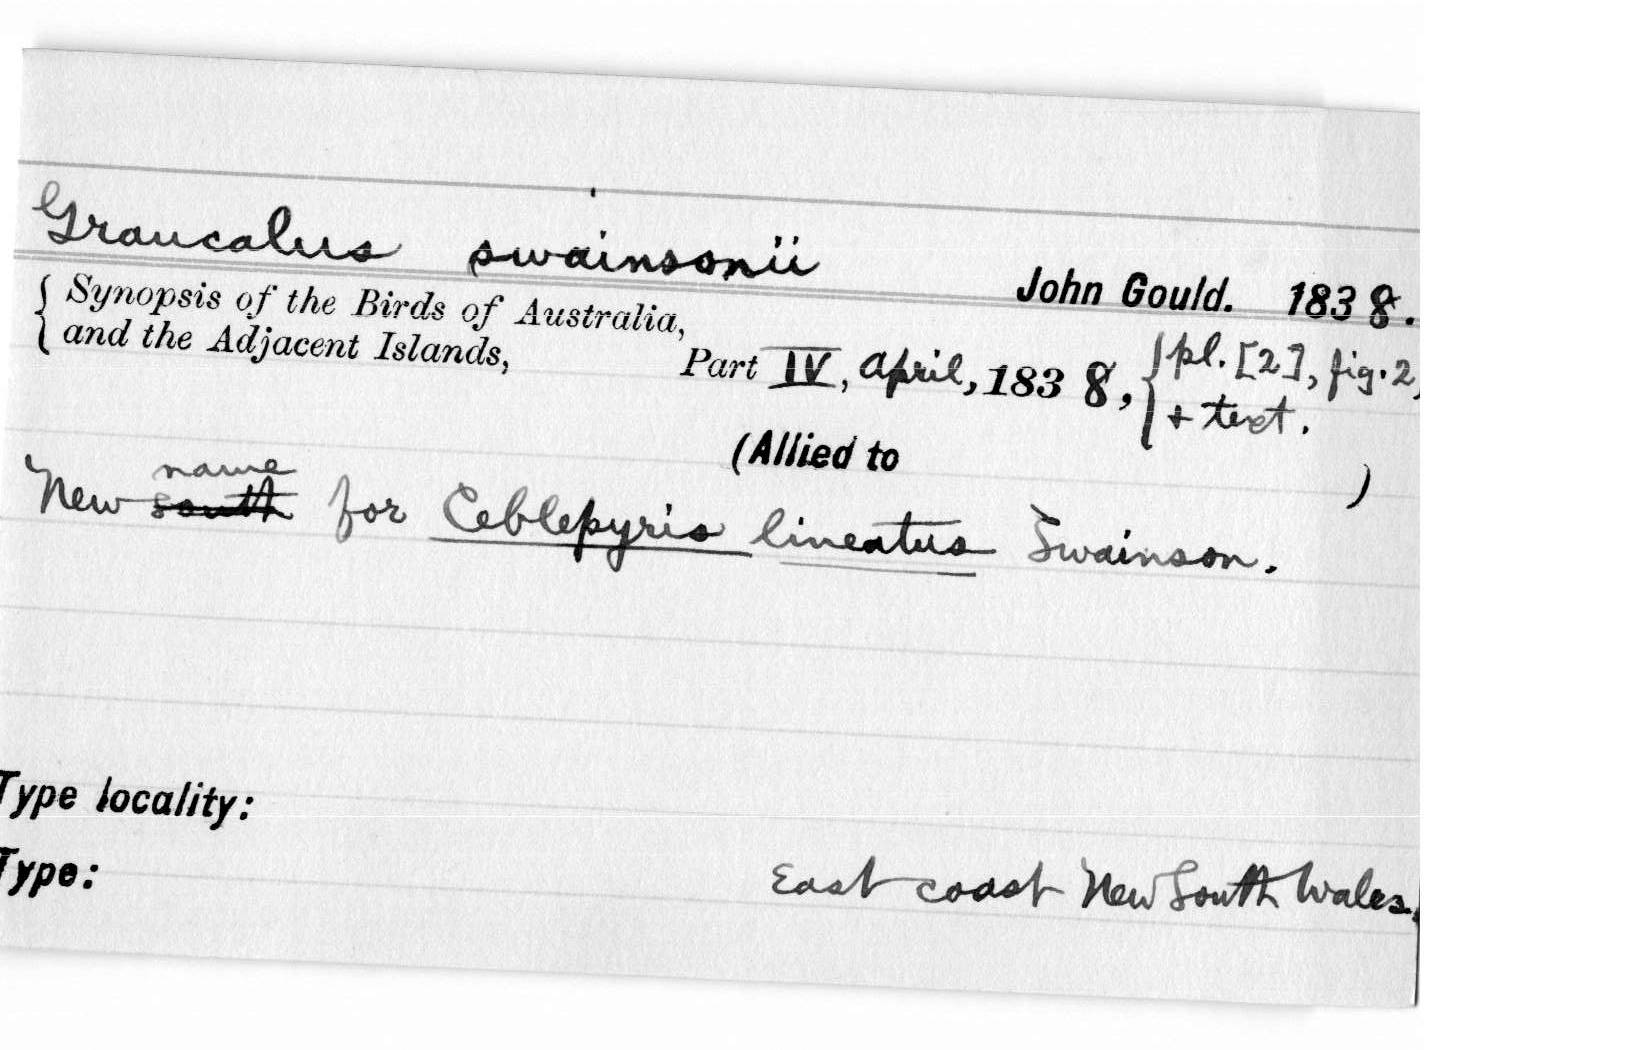 Graucalus swainsonii
John Gould. 1838.
{ Synopsis of the Birds of Australia,
and the Adjacent Islands,
Part IV, April, 1838, { pl. [2], fig. 2,
+ text.
(Allied to )
name
New south for Ceblepyris lineatus Swainson.
Type locality:
Type:
East coast New South Wales.